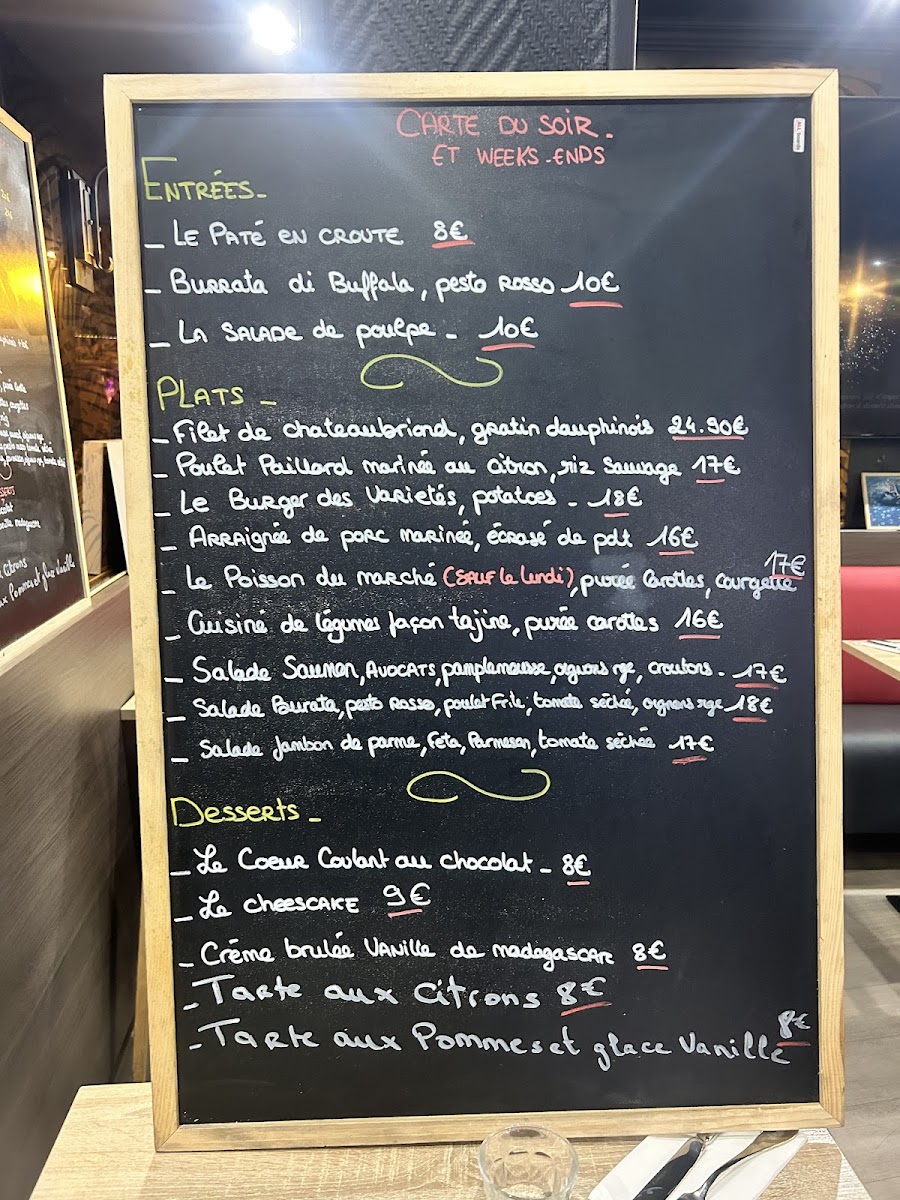 CARTE DU SOIR.
ET WEEKS-ENDS
ENTRÉES-
- LE PATÉ EN CROUTE 8€
- BURRATA di Buffala, pesto ROSSO 10€
- LA SALADE de poulpe - 10€
PLATS -
- Filet de chateaubriand, gratin dauphinois 24.90€
- Poulet Paillard marinée au citron, riz Sauvage 17€
- Le Burger des Varietés, potatoes - 18€
- ARRAignée de porc marinée, écrasé de pdt 16€
- Le Poisson du marché (SAUF le lundi), purée Carottes, courgette 17€
- Cuisiné de légumes façon tajine, purée carottes 16€
- Salade Saumon, AVOCATS, pamplemousse, oignons rge, croutons - 17€
- Salade Burata, pesto Rosso, poulet Frite, tomate séchée, oignons rge 18€
- Salade Jambon de parme, Feta, Parmesan, tomate séchée 17€
Desserts -
- Le Coeur Coulant au chocolat - 8€
- Le CHEESCAKE 9€
- Crème brulée VANille de madagascar 8€
- Tarte aux Citrons 8€
- Tarte aux Pommes et glace Vanille 8€
zarottes, carottes
DESSERTS
madagascar
Citrons
ux Pommes et glace Vanille